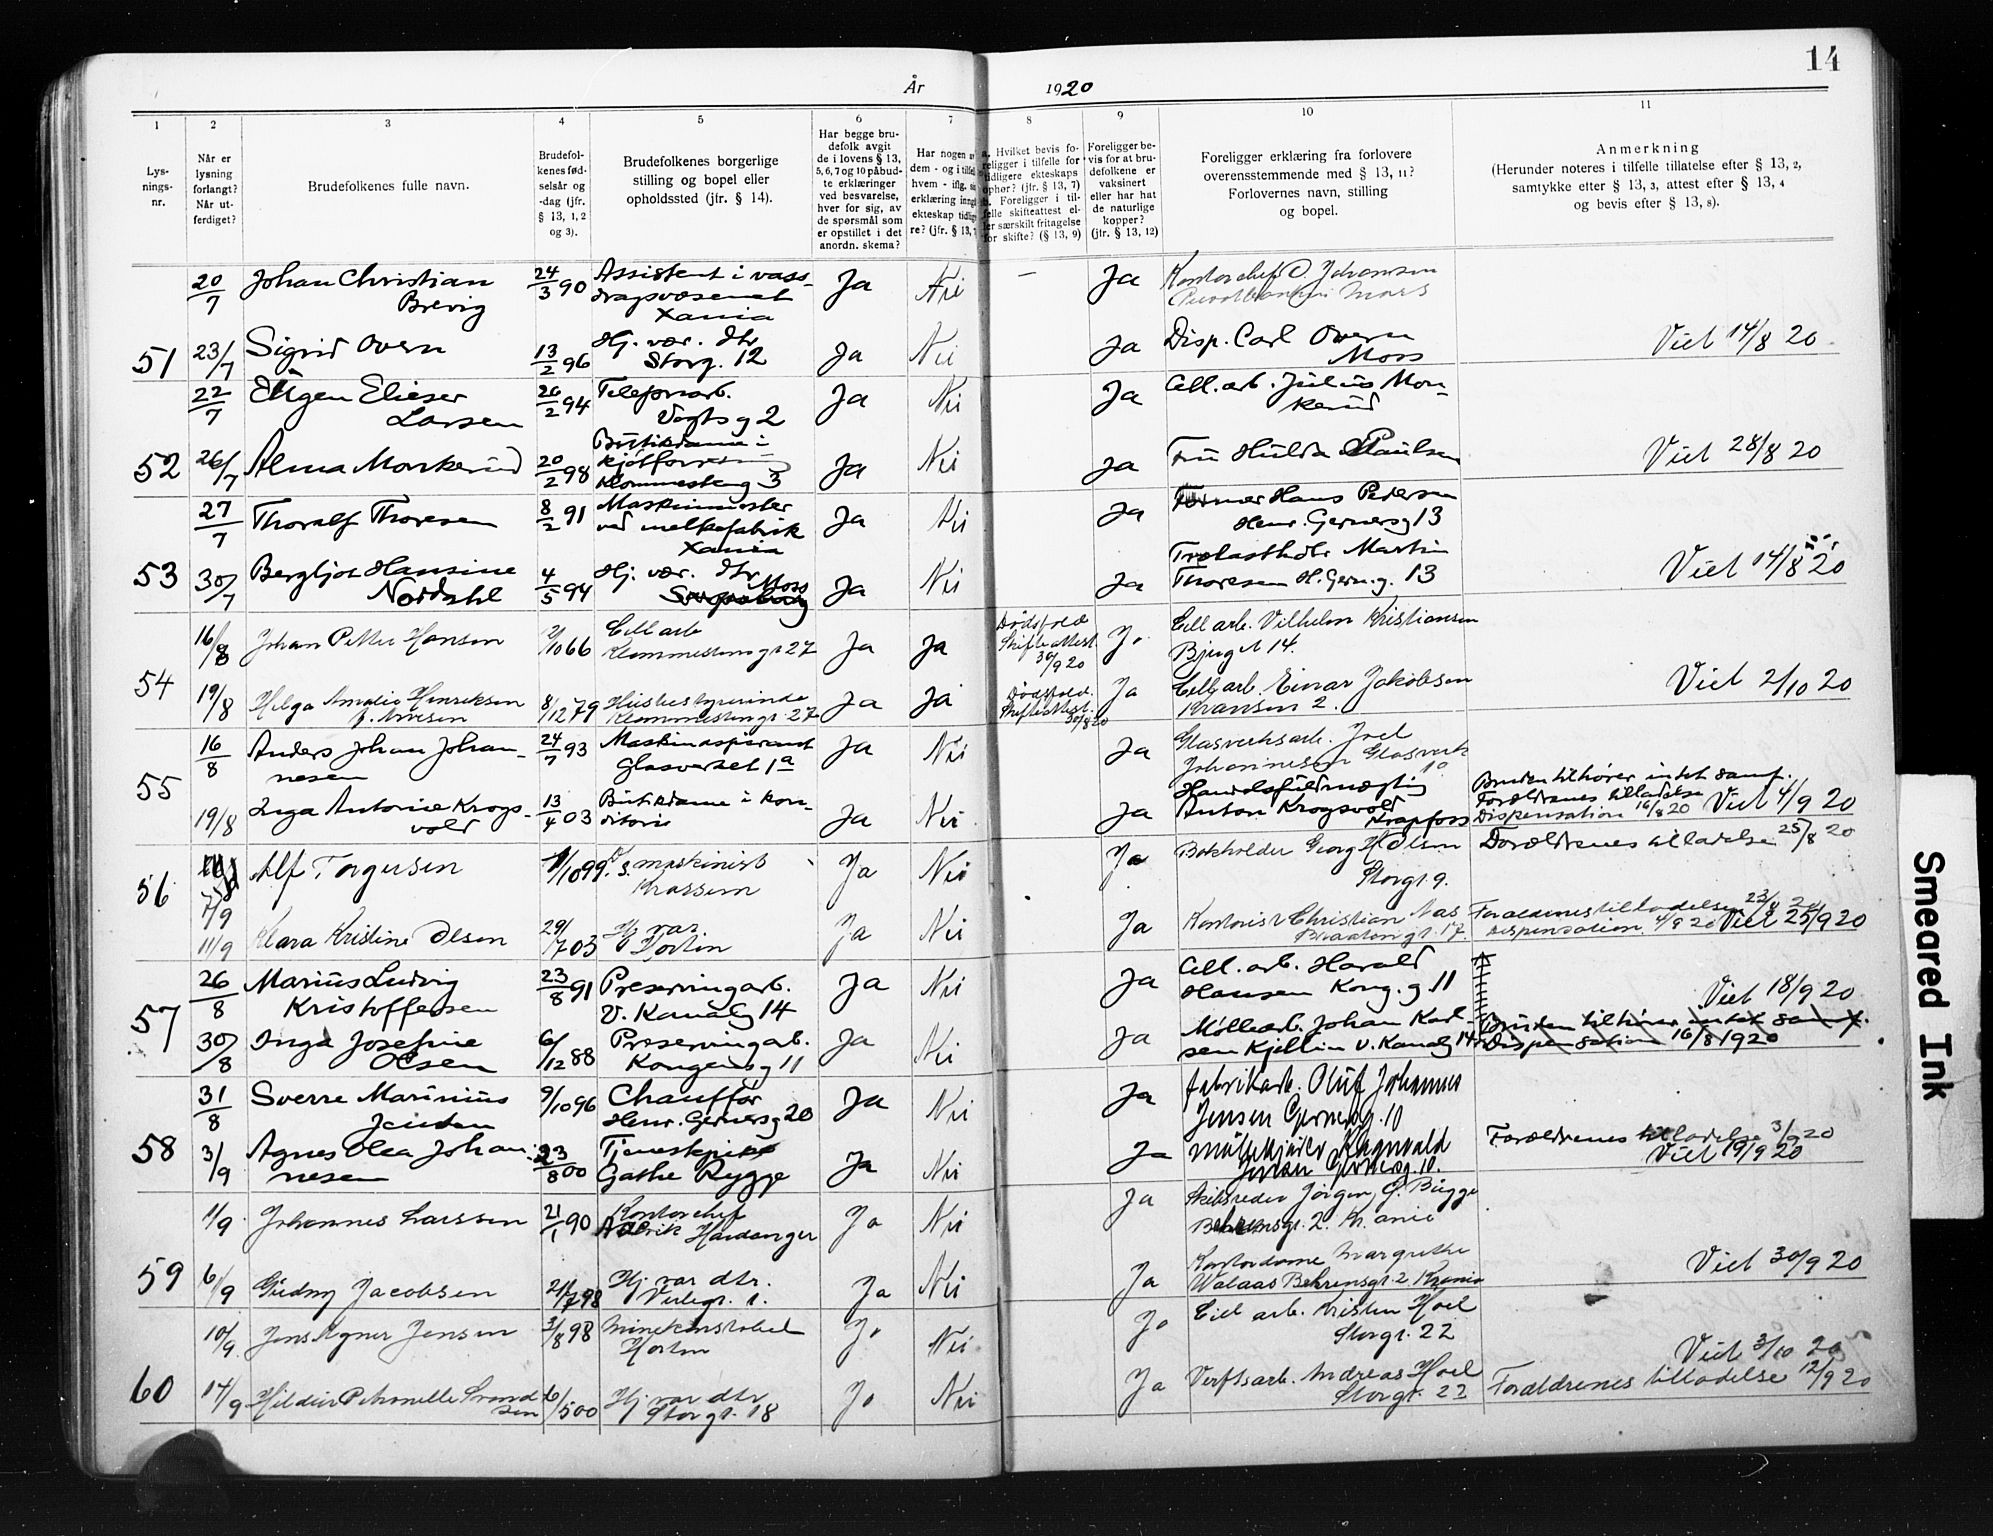 14
År 1920
1 2 3 4 5 6 7 8 9 10 11
Lysningsnr.
Når er lysning forlangt? Når utferdiget?
Brudefolkenes fulle navn.
Brudefolkenes fødselsår og -dag (jfr. § 13, 1, 2 og 3).
Brudefolkenes borgerlige stilling og bopel eller opholdssted (jfr. § 14).
Har begge brudefolk avgit de i lovens § 13, 5, 6, 7 og 10 påbudte erklæringer ved besvarelse, hver for sig, av de spørsmål som er opstillet i det anordn. skema?
Har nogen av dem - og i tilfelle hvem - iflg. sin erklæring inngått ekteskap tidligere? (jfr. § 13, 7
a. Hvilket bevis foreligger i tilfelle for tidligere ekteskaps ophør? (jfr. § 13, 7) b. Foreligger i tilfelle skifteattest eller særskilt fritagelse for skifte? (§ 13, 9)
Foreligger bevis for at brudefolkene er vaksinert eller har hat de naturlige kopper? (jfr. § 13, 12)
Foreligger erklæring fra forlovere overensstemmende med § 13, 11? Forlovernes navn, stilling og bopel.
Anmerkning (Herunder noteres i tilfelle tillatelse efter § 13, 2, samtykke efter § 13, 3, attest efter § 13, 4 og bevis efter § 13, 8).
20/7 Johan Christian Brevig 24/3 90 Assistent i vassdragsvæsenet Xania Ja Nei – Ja Kontorchef O. Johansen Moss
51 23/7 Sigrid Overn 13/2 96 Hj. vær. dtr Storg. 12 Ja Nei Ja Disp. Carl Overn Moss Viet 14/8 20
22/7 Eugen Elieser Larsen 26/2 94 Telefonarb. Vogtsg 2 Ja Nei Ja Cell. arb. Julius Monkerud
52 26/7 Alma Monkerud 20/2 98 Butikdame i kjøtforretning Klommesteng 3 Ja Nei Ja Fru Hulda Paulsen Viet 28/8 20
27/7 Thoralf Thoresen 8/2 91 Maskinmester ved melkefabrik Xania Ja Nei Ja Former Hans Pedersen Henr. Gernersg 13
53 30/7 Bergljot Hansine Nordahl 4/5 94 Hj. vær. dtr Moss Ja Nei Ja Trælasthdlr Martin Thoresen H. Gern.g. 13 Viet 14/8 20
16/8 Johan Petter Hansen 2/10 66 Cell arb Klommestengt 27 Ja Ja Dødsfald Skifteattest 30/9 20 Ja Cell arb. Vilhelm Kristiansen Bjergt 14.
54 19/8 Helga Amalie Henriksen f. Arnesen 8/12 79 Husbestyrerinde Klommestengt. 27 Ja Ja Dødsfald. Skifteattest. 30/8 20 Ja Cell arb. Einar Jakobsen Kransen 2. Viet 2/10 20
16/8 Anders Johan Johannesen 24/7 93 Maskinaspirant Glasverket 1a Ja Nei Ja Glasverksarb. Joel Johannesen Glasverk 1a
55 19/8 Inga Antonie Krogsvold 13/4 03 Butikdame i konditori Ja Nei Ja Handelsfuldmægtig Anton Krogsvold Krapfoss Bruden tilhører intet samf. Forældrenes tilladelse Dispensation 16/8 20 Viet 4/9 20
56 7/9 Alf Torgersen 1/10 99 D.S. maskinist Krossern Ja Nei Ja Bokholder Georg H Olsen Storgt 9. Forældrenes tilladelse 25/8 20
11/9 Klara Kristine Olsen 29/7 03 Hj var Horten Ja Nei Ja Kontorist Christian Aas gt. 17. Forældrenes tilladelse 23/8 20 Dispensation. 4/9 20 Viet 25/9 20
26/8 Marius Ludvig Kristoffersen 23/8 91 Preservingarb. V. Kanalg 14 Ja Nei Ja Cell. arb. Harald Hansen Kong. g 11 Viet 18/9 20
57 30/8 Inga Josefine Olsen 6/12 88 Preservingarb. Kongensg 11 Ja Nei Ja Møllearb. Johan Karlsen Kjellin V. Kanalg 14 Bruden tilhører intet samf. Dispensation 16/8 1920
31/8 Sverre Marinius Jensen 9/10 96 Chauffør Henr. Gernersg 20 Ja Nei Ja fabrikarb. Oluf Johannes Jensen Gernersg. 10
58 3/9 Agnes Olea Johannesen 23/8 00 Tjenestepike Gathe Rygge Ja Nei Ja Ragnvald Jensen Gernersg. 10. Forældrenes tilladelse 3/9 20 Viet 19/9 20
1/9 Johannes Larssen 21/1 90 Kontorchef Hardanger Ja Nei Ja Skibsreder Jørgen C. Bugge Behrensgt. 2. Kr.ania
59 6/9 Gudny Jacobsen 21/7 98 Hj var dtr. Verlegt. 1. Ja Nei Ja Kontordame Margrethe Walaas Behrensgt. 2 Krania Viet 30/9 20
10/9 Jens Agner Jensen 3/8 98 Minekonstabel Horten Ja Nei Ja Cell arb. Kristen Hoel Storgt. 22 Viet 3/10 20
60 14/9 Hildur Petronelle Svendsen 16/5 00 Hj var dtr Storgt. 18 Ja Nei Ja Verftsarb. Andreas Hoel Storgt. 22 Forældrenes tilladelse 12/9 20
Smeared Ink